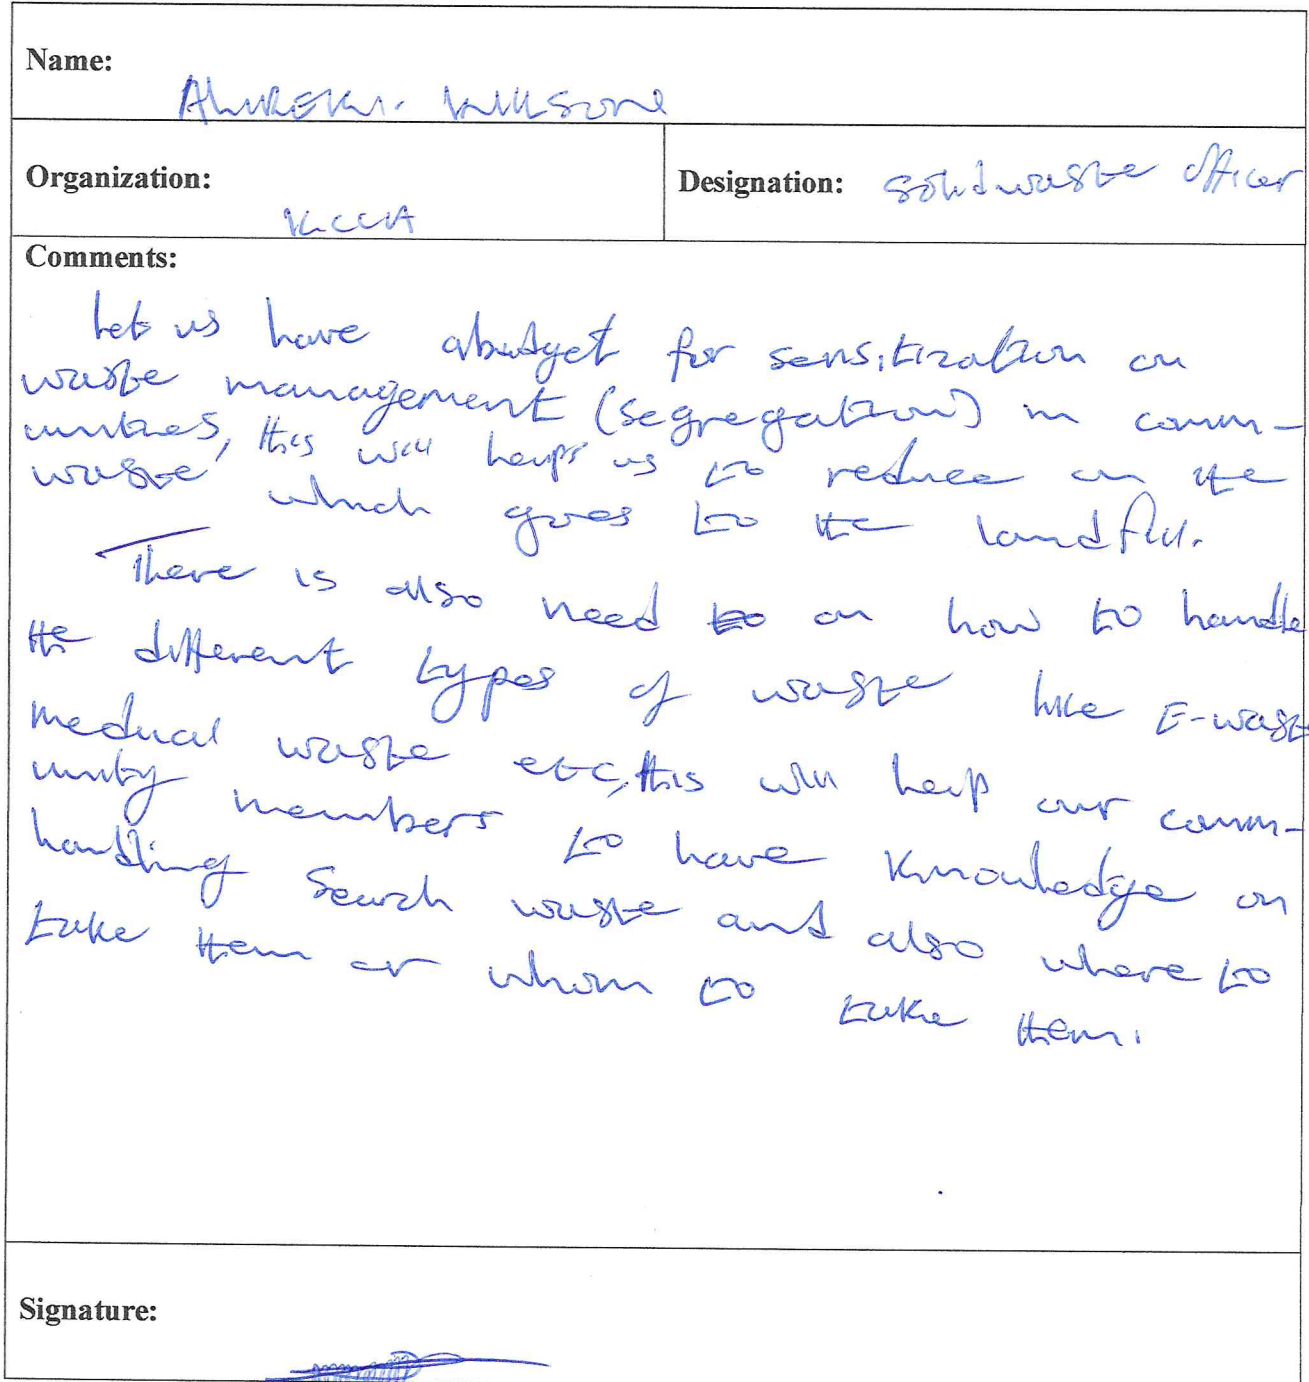 Name:
Organization:
KCCA
Designation: Solidwaste Officer
Comments:
Let us have abudget for sensitization on
waste management (segregation) in comm-
unities, this will helps us to reduce on the
waste which goes to the landfill.
There is also need to on how to handle
the different types of waste like E-waste
medical waste etc, this will help our comm-
unity members to have knowledge on
handling Search waste and also where to
take them or whom to take them.
Signature: